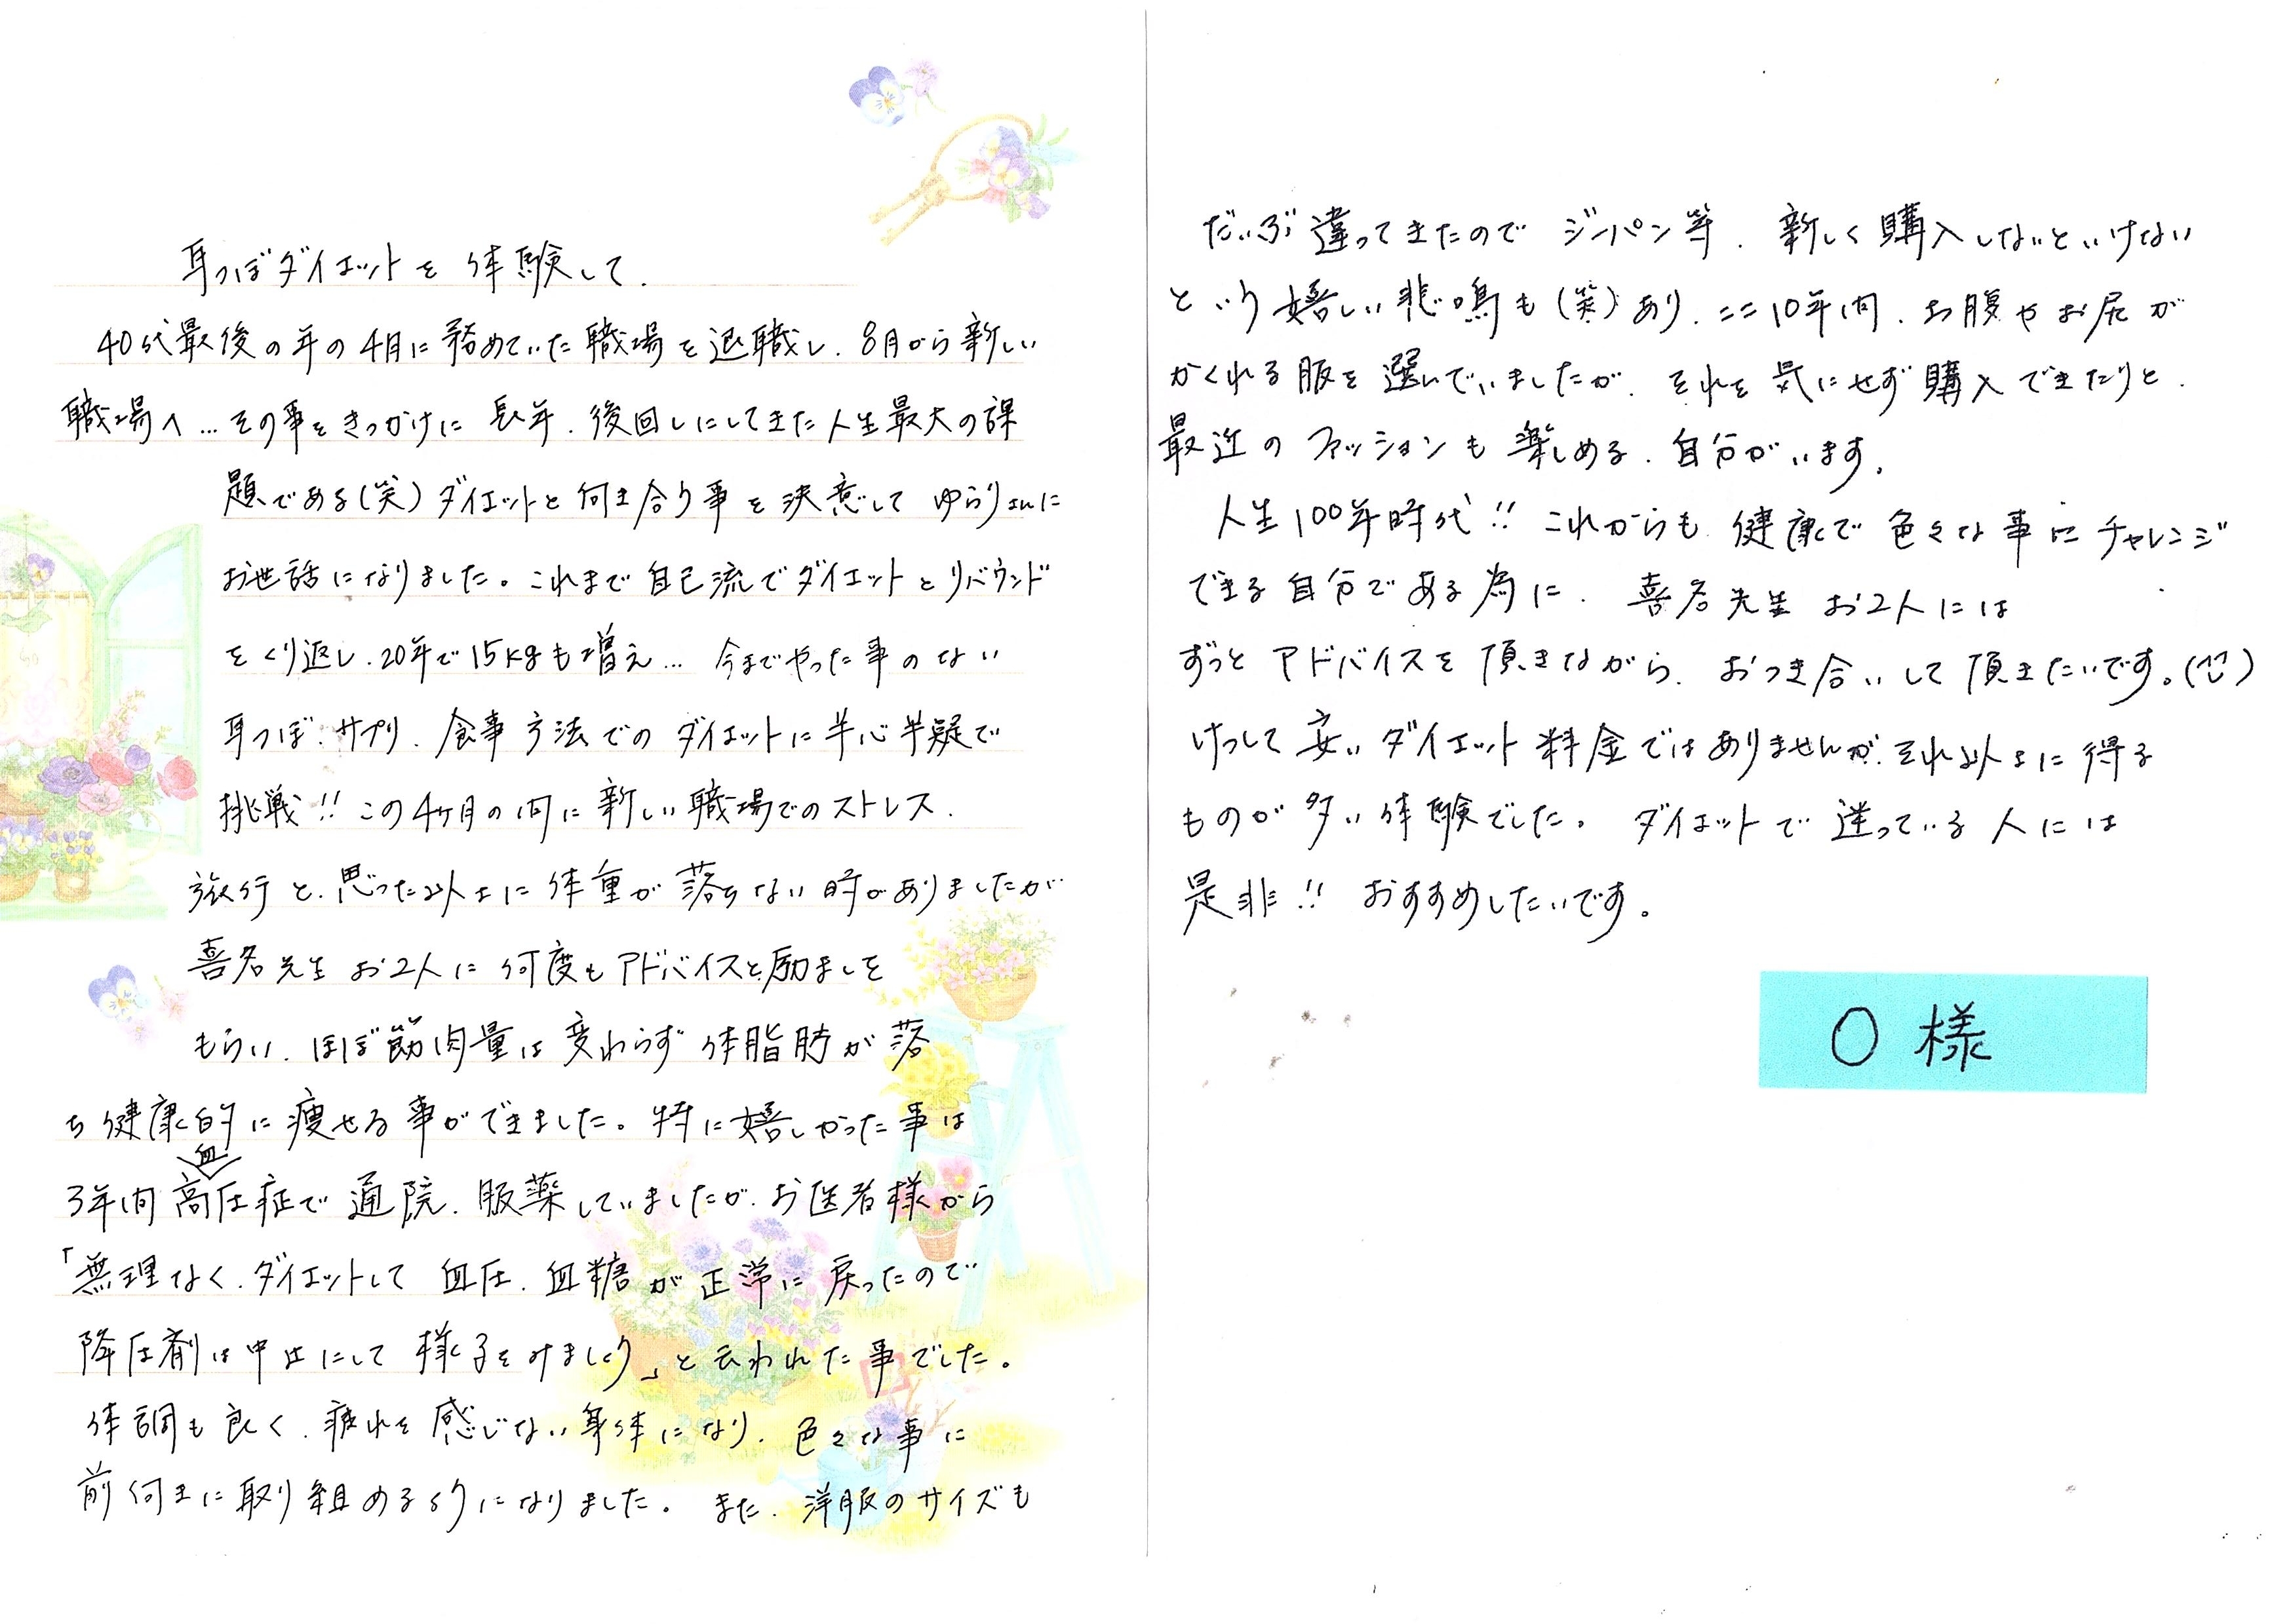 耳つぼダイエットを体験して、
40代最後の年の4月に務めていた職場を退職し、8月から新しい
職場へ…その事をきっかけに長年、後回しにしてきた人生最大の課
題である(笑)ダイエットと向き合う事を決意してゆらりさんに
お世話になりました。これまで自己流でダイエットとリバウンド
をくり返し、20年で15kgも増え…今までやった事のない
耳つぼ、サプリ、食事方法でのダイエットに半心半疑で
挑戦!!この4ヶ月の間に新しい職場でのストレス、
旅行と、思った以上に体重が落ちない時がありましたが
喜名先生お2人に何度もアドバイスと励ましを
もらい、ほぼ筋肉量は変わらず体脂肪が落
ち健康的に痩せる事ができました。特に嬉しかった事は
3年間高血圧症で通院、服薬していましたが、お医者様から
「無理なく、ダイエットして血圧、血糖が正常に戻ったので
降圧剤は中止にして様子をみましょう」と云われた事でした。
体調も良く、疲れを感じない身体になり、色々な事に
前向きに取り組めるようになりました。また、洋服のサイズも
だいぶ違ってきたのでジーパン等、新しく購入しないといけない
という嬉しい悲鳴も(笑)あり、ここ10年間、お腹やお尻が
かくれる服を選んでいましたが、それを気にせず購入できたりと、
最近のファッションも楽しめる、自分がいます。
人生100年時代!!これからも健康で色々な事にチャレンジ
できる自分である為に、喜名先生お2人には
ずっとアドバイスを頂きながら、おつき合いして頂きたいです。(^^)
けっして安いダイエット料金ではありませんが、それ以上に得る
ものが多い体験でした。ダイエットで迷っている人には
是非!!おすすめしたいです。
O様